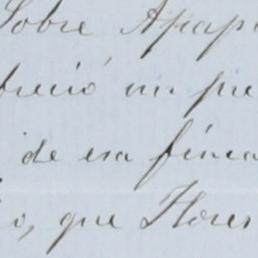 Sobre Apap
freció un pre
de esa finca
o, que Flores